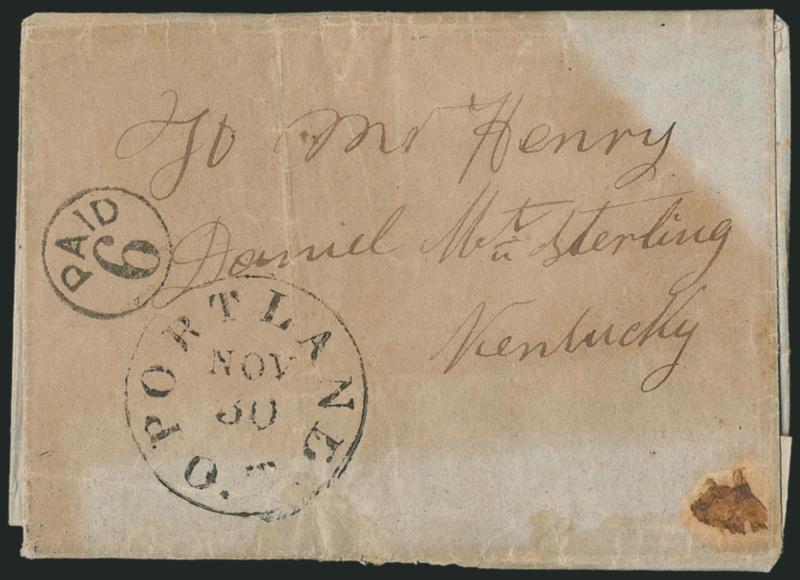 To Mr Henry
Daniel Mt Sterling
Kentucky
PAID
6
PORTLAND
NOV
30
O.